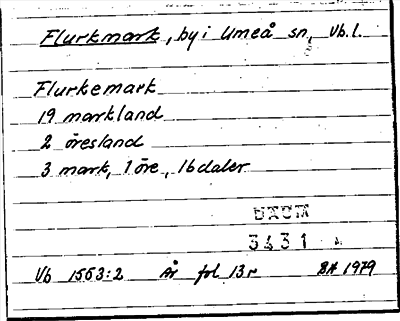 Flurkmark, by i Umeå sn, Vb. l.
Flurkemark
19 markland
2 öresland
3 mark, 1 öre, 16 daler
DAUM
3431
Vb 1563:2 År fol 13r BH 1979